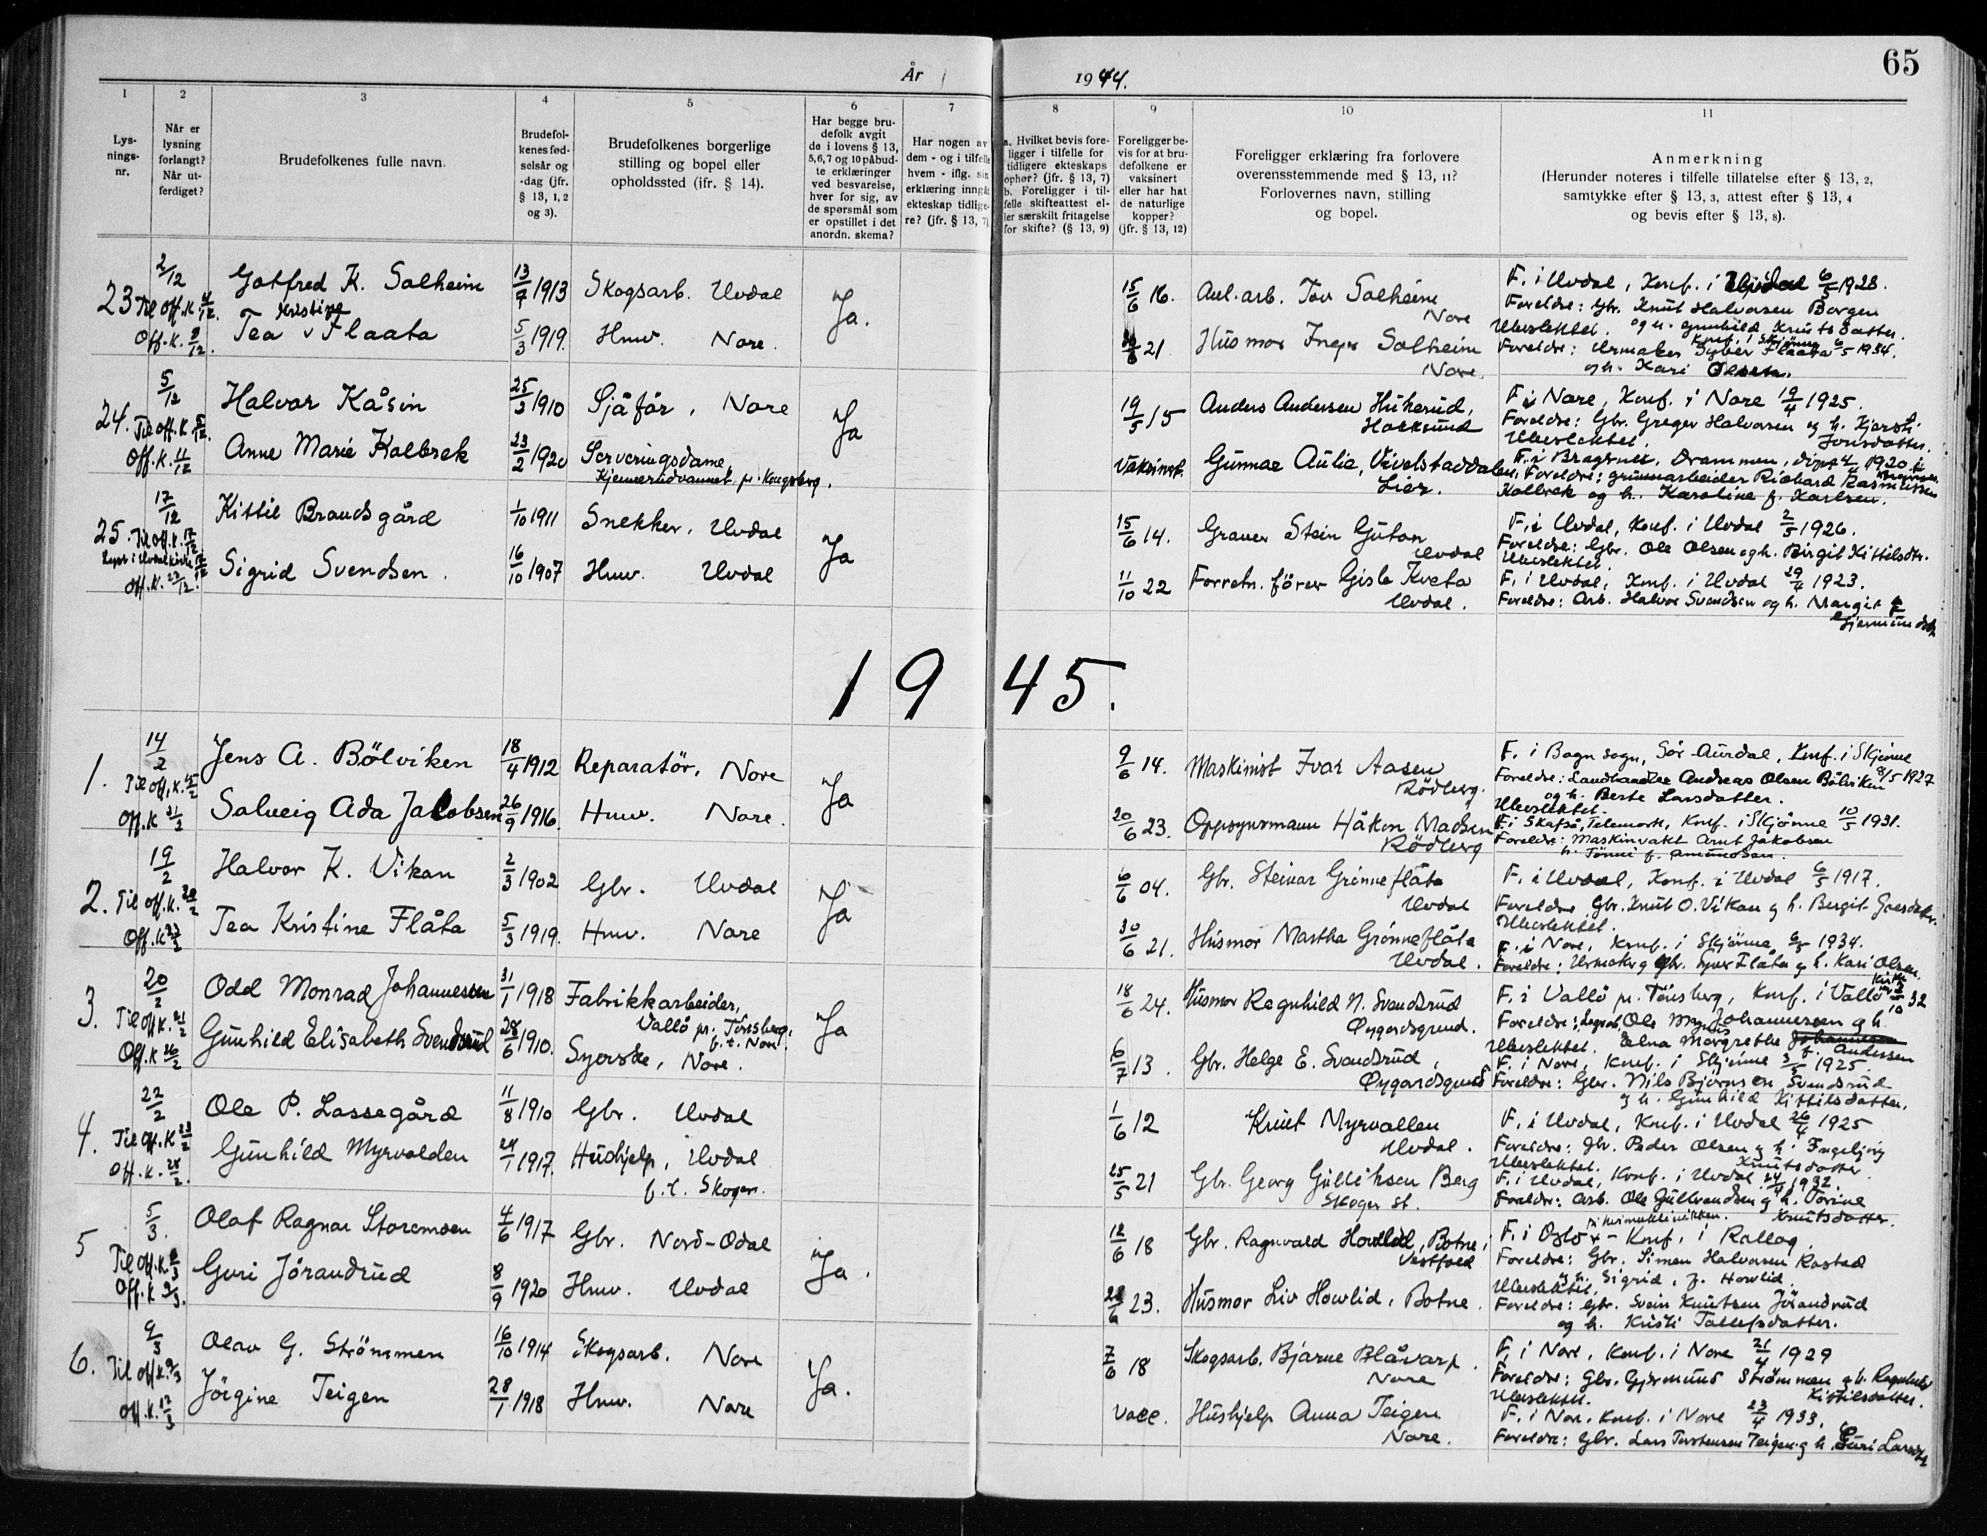 65
År 1944.
1
2
3
4
5
6
7
8
9
10
11
Lys-
nings-
nr.
Når er
lysning
forlangt?
Når ut-
ferdiget?
Brudefolkenes fulle navn.
Brudefol-
kenes fød-
selsår og
-dag (jfr.
§ 13, 1, 2
og 3).
Brudefolkenes borgerlige
stilling og bopel eller
opholdssted (ifr. § 14).
Har begge bru-
defolk avgit
de i lovens § 13,
5,6,7 og 10 påbud-
te erklæringer
ved besvarelse,
hver for sig, av
de spørsmål som
er opstillet i det
anordn. skema?
Har nogen av
dem - og i tilfelle
hvem - iflg. sin
erklæring inngåt
ekteskap tidlige-
re? (jfr. § 13, 7)
a. Hvilket bevis fore-
ligger i tilfelle for
tidligere ekteskaps
ophør? (jfr. § 13, 7)
b. Foreligger i til-
felle skifteattest el-
ler særskilt fritagelse
for skifte? (§ 13, 9)
Foreligger be-
vis for at bru-
defolkene er
vaksinert
eller har hat
de naturlige
kopper?
(jfr. § 13, 12)
Foreligger erklæring fra forlovere
overensstemmende med § 13, 11?
Forlovernes navn, stilling
og bopel.
Anmerkning
(Herunder noteres i tilfelle tillatelse efter § 13, 2,
samtykke efter § 13, 3, attest efter § 13, 4
og bevis efter § 13, 8).
23 2/12 Gotfred K. Solheim 13/7 1913 Skogsarb. Uvdal Ja. 15/6 16. Anl.arb. Tov Solheim Nore F. i Uvdal, Konf. i Uvdal 6/5 1928.
Foreldre: Gbr. Knut Halvorsen Borgen
og h. Gunhild Knutsdatter.
Til Off. K. 4/12.
Off. K. 8/12.
Tea Kristine Flaata 5/3 1919. Husv. Nore. 21 Husmor Inger Solheim Nore. Ubeslektet. Konf. i Skjønne 6/5 1934.
Foreldre: Urmaker Syver Flaata
og h. Kari Olsen.
24. 5/12 Halvor Kåsin 25/3 1910 Sjåfør, Nore Ja 19/5 15 Anders Andersen Hukerud, Hokksund F. i Nore, Konf. i Nore 19/4 1925.
Foreldre: Gbr. Greger Halvorsen og h. Kjersti
Jonsdatter.
Ubeslektet.
Til off. K.
Off. K. 11/12
Anne Marie Kolbrek 23/2 1920 Serveringsdame Vaksinert. Gunnar Aulie, Vivelstaddalen, Lier. F. i Bragernes, Drammen, døpt 4/4 1920 i
Kjennerudvannet pr. Kongsberg.
Foreldre: grunnarbeider Richard Rasmussen
Kolbrek og h. Karoline f. Karlsen.
25. 17/12 Kittil Brandsgård 1/10 1911 Snekker, Uvdal Ja 15/6 14. Graver Stein Guton Uvdal F. i Uvdal, Konf. i Uvdal 2/5 1926.
Foreldre: Gbr. Ole Olsen og h. Birgit Kittilsdtr.
Ubeslektet.
Til off. K. 17/12
Lyst i Uvdal kirke
Off. K. 27/12.
Sigrid Svendsen. 16/10 1907 Husv. Uvdal 11/10 22 Forretn. fører Gisle Kveta Uvdal. F. i Uvdal, Konf. i Uvdal 29/4 1923.
Foreldre: Arb. Halvor Svendsen og h. Margit
Gjermundsdtr.
1945.
1. 14/2 Jens A. Bölviken 18/4 1912 Reparatör, Nore Ja 9/6 14. Maskinist Ivar Aasen Rödberg. F. i Bagn sogn, Sør Aurdal, Konf. i Skjønne
8/5 1927
Foreldre: Landhandler Andreas Olsen Bölviken
og h. Berte Larsdatter.
Ubeslektet.
Til Off. K. 15/2
Off. K 21/2
Solveig Ada Jakobsen 26/9 1916. Husv. Nore. 20/6 23. Oppsynsmann Håkon Madsen Rödberg F. i Skafså, Telemark, Konf. i Skjønne 10/5 1931.
Foreldre: Maskinvakt Arnt Jakobsen
h. Tomine f. Amundsen.
2. 19/2 Halvor K. Vikan 2/3 1902 Gbr. Uvdal Ja 6/6 04. Gbr. Steinar Grönneflåta Uvdal F. i Uvdal, Konf. i Uvdal 6/5 1917.
Foreldre Gbr. Knut O. Vikan og h. Bergit Goesdatter.
Ubeslektet.
Til off. K. 20/2
Off. K 27/2
Tea Kristine Flåta 5/3 1919. Husv. Nore 30/6 21. Husmor Martha Grönneflåta Uvdal. F. i Nore, Konf. i Skjønne 6/5 1934.
Foreldre: Urmaker og gbr. Syver Flåta og h. Kari Olsen.
3. 20/2 Odd Monrad Johannessen 31/1 1918 Fabrikkarbeider, Ja 18/6 24. Husmor Ragnhild N. Svendsrud Øygardsgrend. F. i Vallö pr. Tönsberg, Konf. i Vallö Kirke 32
Vallö pr. Tönsberg, f.t. Nore.
Foreldre: Ole Magnus Johannessen og h.
Elna Margrethe f. Andersen
Ubeslektet.
Til Off K. 21/2
Off. K 26/2
Gunhild Elisabeth Svendsrud 28/6 1910. Syerske, Nore. 6/7 13. Gbr. Helge E. Svendsrud, Øygardsgrend F. i Nore, Konf. i Skjønne 3/5 1925.
Foreldre: Gbr. Nils Bjørnsen Svendsrud
og h. Gunhild Kittilsdatter.
4. 22/2 Ole P. Lassegård 11/8 1910 Gbr. Uvdal 1/6 12 Knut Myrvollen Uvdal. F. i Uvdal, Konf. i Uvdal 26/4 1925
Foreldre: Gbr. Peder Olsen og h. Ingebjörg
Knutsdatter
Ubeslektet.
Til Off. K 23/2
Off. K. 28/2.
Gunhild Myrvolden 24/1 1917. Hushjelp, Uvdal f.t. Skoger. 25/5 21 Gbr. Georg Gulliksen Berg Skoger st. F. i Uvdal, Konf. i Uvdal 24/4 1932.
Foreldre: Arb. Ole Gulbrandsen og h. Torine
Knutsdatter.
5 5/3. Olaf Ragnar Storemoen 4/6 1917 Gbr. Nord-Odal Ja. 12/6 18 Gbr. Ragnvald Hovlid, Botne, Vestfold F. i Oslo - Konf. i Rollag.
Foreldre: Gbr. Simen Halvorsen Rastad
og h. Sigrid, f. Hovlid.
Ubeslektet.
Til Off. K. 8/3
Off. K 9/3.
Guri Jörandrud 8/9 1920 Husv. Uvdal 28/6 23. Husmor Liv Hovlid, Botne. Foreldre: Gbr. Svein Knutsen Jörandrud
og h. Kristi Tollefsdatter.
6. 9/3 Olav G. Strömmen 16/10 1914 Skogsarb. Nore Ja. 7/6 18 Skogsarb. Bjarne Blåvarp. Nore F. i Nore, Konf. i Nore 21/4 1929
Foreldre: Gbr. Gjermund Strømmen og h. Ragnhild
Kittilsdatter.
Ubeslektet.
Til Off K. 9/3
Off. K. 17/3
Jörgine Teigen 28/1 1918 Husv. Nore Vacc. Hushjelp Anna Teigen Nore. F. i Nore, Konf. i Nore 23/4 1933.
Foreldre: Gbr. Lars Torstensen Teigen og h. Guri Larsdtr